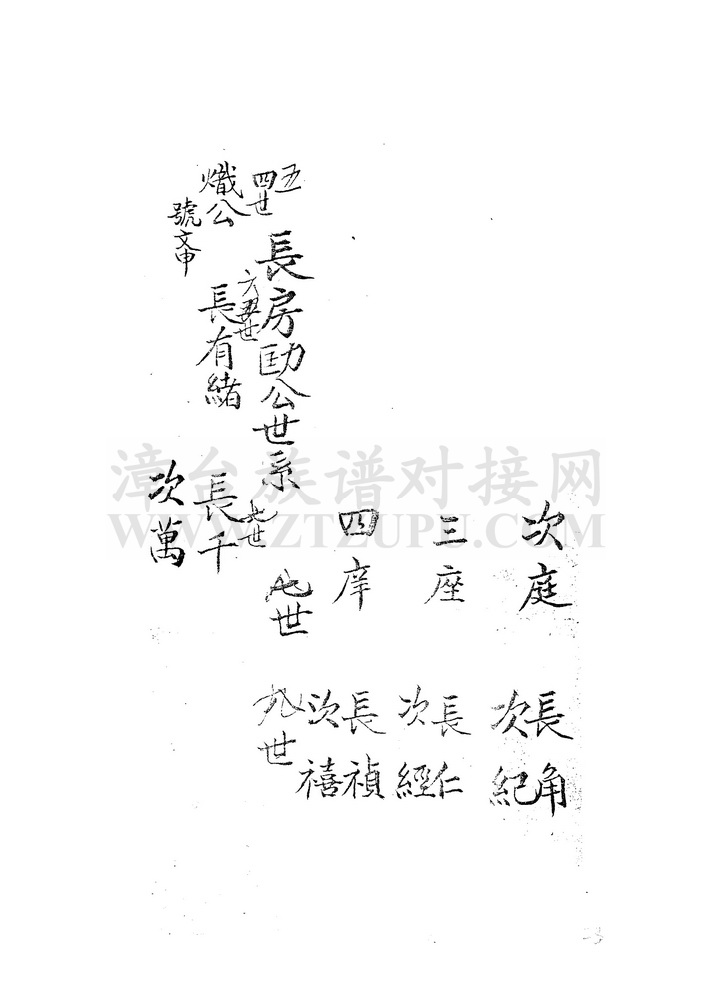 次庭
長角
次紀
三座
長仁
次經
四庠
長禎
次禧
長房勛公世系
九世
五
四世
熾公
號文申
六世
長有緒
七世
長千
次萬
漳台族谱对接网
WWW.ZTZUPU.COM